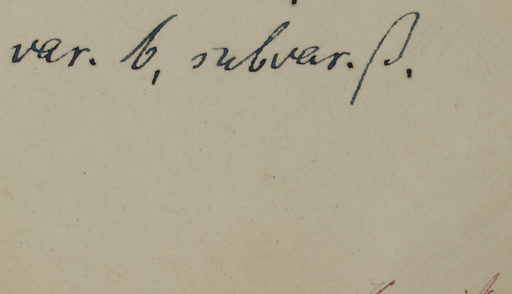 var. b, subvar. β.